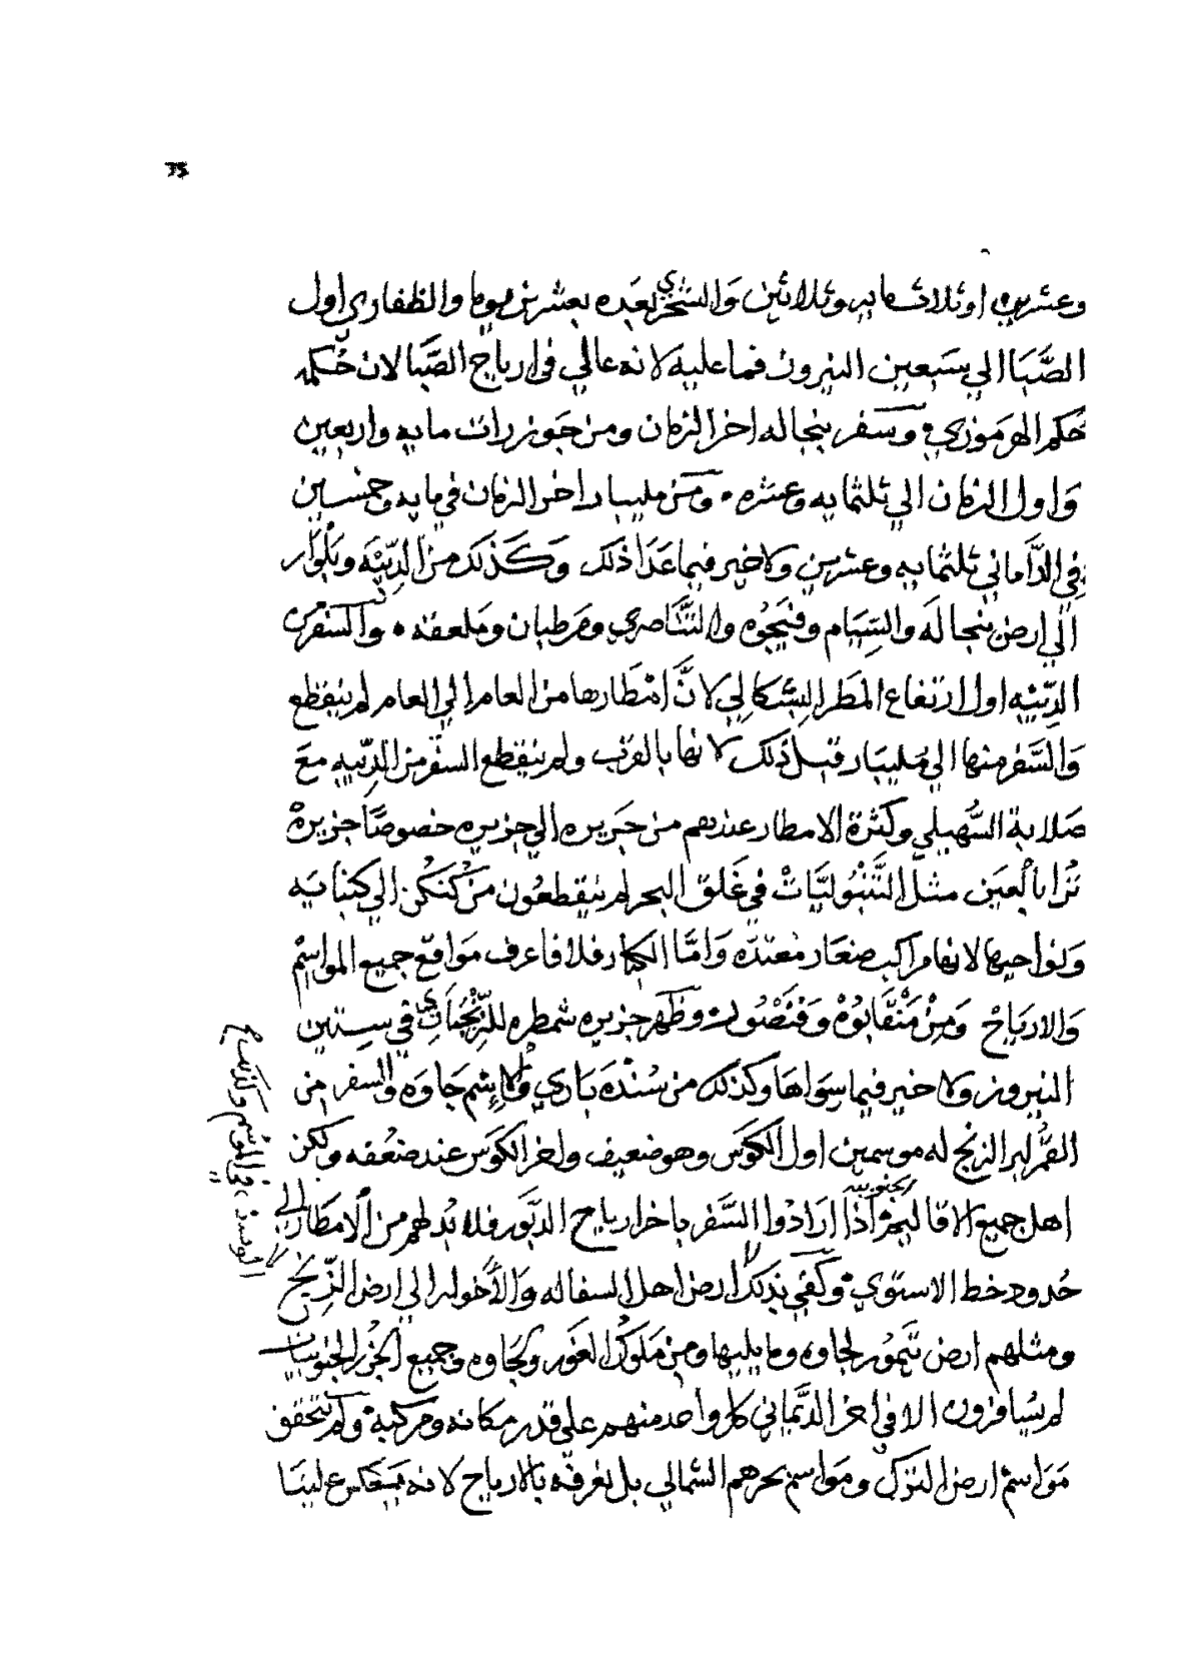 75
وعشرين او ثلاث مايه وثلاثين والشحري بعده بعشرين يوما والظفاري اول
الصَّبَا الي سَبعين النيروز فما عليه لانه عالي في ارياح الصَّبا لان حُكمه
حُكم الهرموزي وسَفر بنجاله اخر الزمان ومن جَوزرات مايه واربعين
وَاول الزمان الي ثلثمايه وعشره ومَن مليبار اخر الزمان في مايه وخمسين
في الدَّاماني ثلثمايه وعشرين ولا خير فيما عَدَا ذلك وَكَذلك من الدِّيْبَه
الي ارض بنجاله والسِّيَام والتَّنَاصري ومرطبان وملعقه والسَّفر من
الدِّيْبه اول ارتفاع المَطر لانَّ امْطارها من العام الي العام لم ينقطع
وَالسَّفر منها الي مُليبَار قبل ذلك لانها بالقرب ولم ينقطع السفر من الدِّيبه معَ
صَلابة السُّهيلي وكثرة الامطار عندهم من جَزيره الي جزيره خصوصًا جزيرهْ
مثل التَّنْبُوليَّاتْ في غَلق البحر لم ينقطعُون من كَنْكَن الي كنبايَه
وَنواحيها لانها مراكب صغَار وَامَّا الكبار فلا فاعرف مَواقع جميع المواسِم
وَالارياحْ وَمِنْ وَفَنْصُور وظَهر جزيره شمطره في سِتين
النيروز ولا خير فيما سِوَاهَا وكذلك من سُنْدَه بَاري جَاوَه والسفر من
القُمر لبر الزنج له موسمين اول الكَوَس وهو ضعيف واخر الكَوَس عند ضعفه ولكن
اهل جميع الاقاليم الجنوبيه اذا ارَادُوا السَّفر باخر ارياح الدبَّور فلا بُد لهم من الامطار الي
حُدود خط الاستوَي وكَفي بذلك ارض اهل السفاله وَالاخوار الي ارض الزِّنج
ومثلهم ارض تَيمُور لجاوه وما يليها ومن مَلوك الغَور وجَاوه وجميع الجُزر الجنوبيات
لم يُسَافرون الا في اخر الدَّيماني كل واحد منهم علي قدر مكانه ومركبه ولم نتحقق
مَوَاسم ارض التزك ومَوَاسم بحرهم الشمالي بل نعرفه بالارياح لانه ينعَكس علينَا